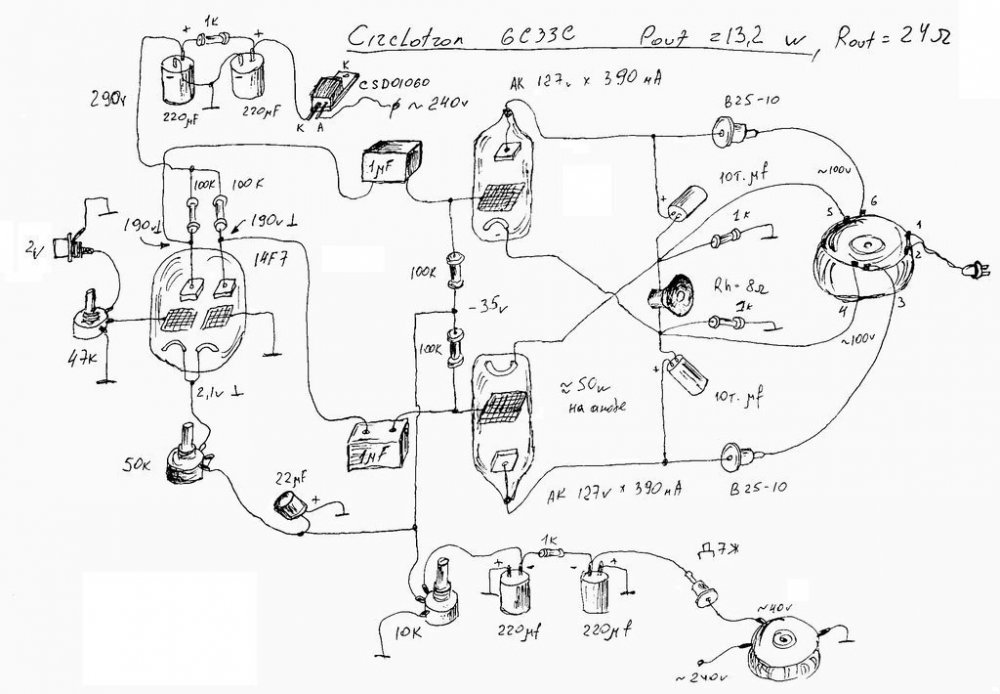 Circlotron 6C33C Pout = 13,2 w, Rout = 24Ω
1k
+
+
220µF
220µF
290v
K
CSD01060
K A
~240v
AK 127v x 390мА
B25-10
1µF
100K
100K
190v⊥
190v⊥
2v
14F7
47K
2,1v⊥
50K
22µF
+
1µF
100K
-35v
100K
+
10т.µf
1k
Rh=8Ω
1k
+
10т.µf
~100v
5
6
1
2
4
3
~100v
≈50w
на аноде
AK 127v x 390мА
B25-10
10K
+
-
1k
-
+
220µf
220µf
Д7Ж
~40v
~240v